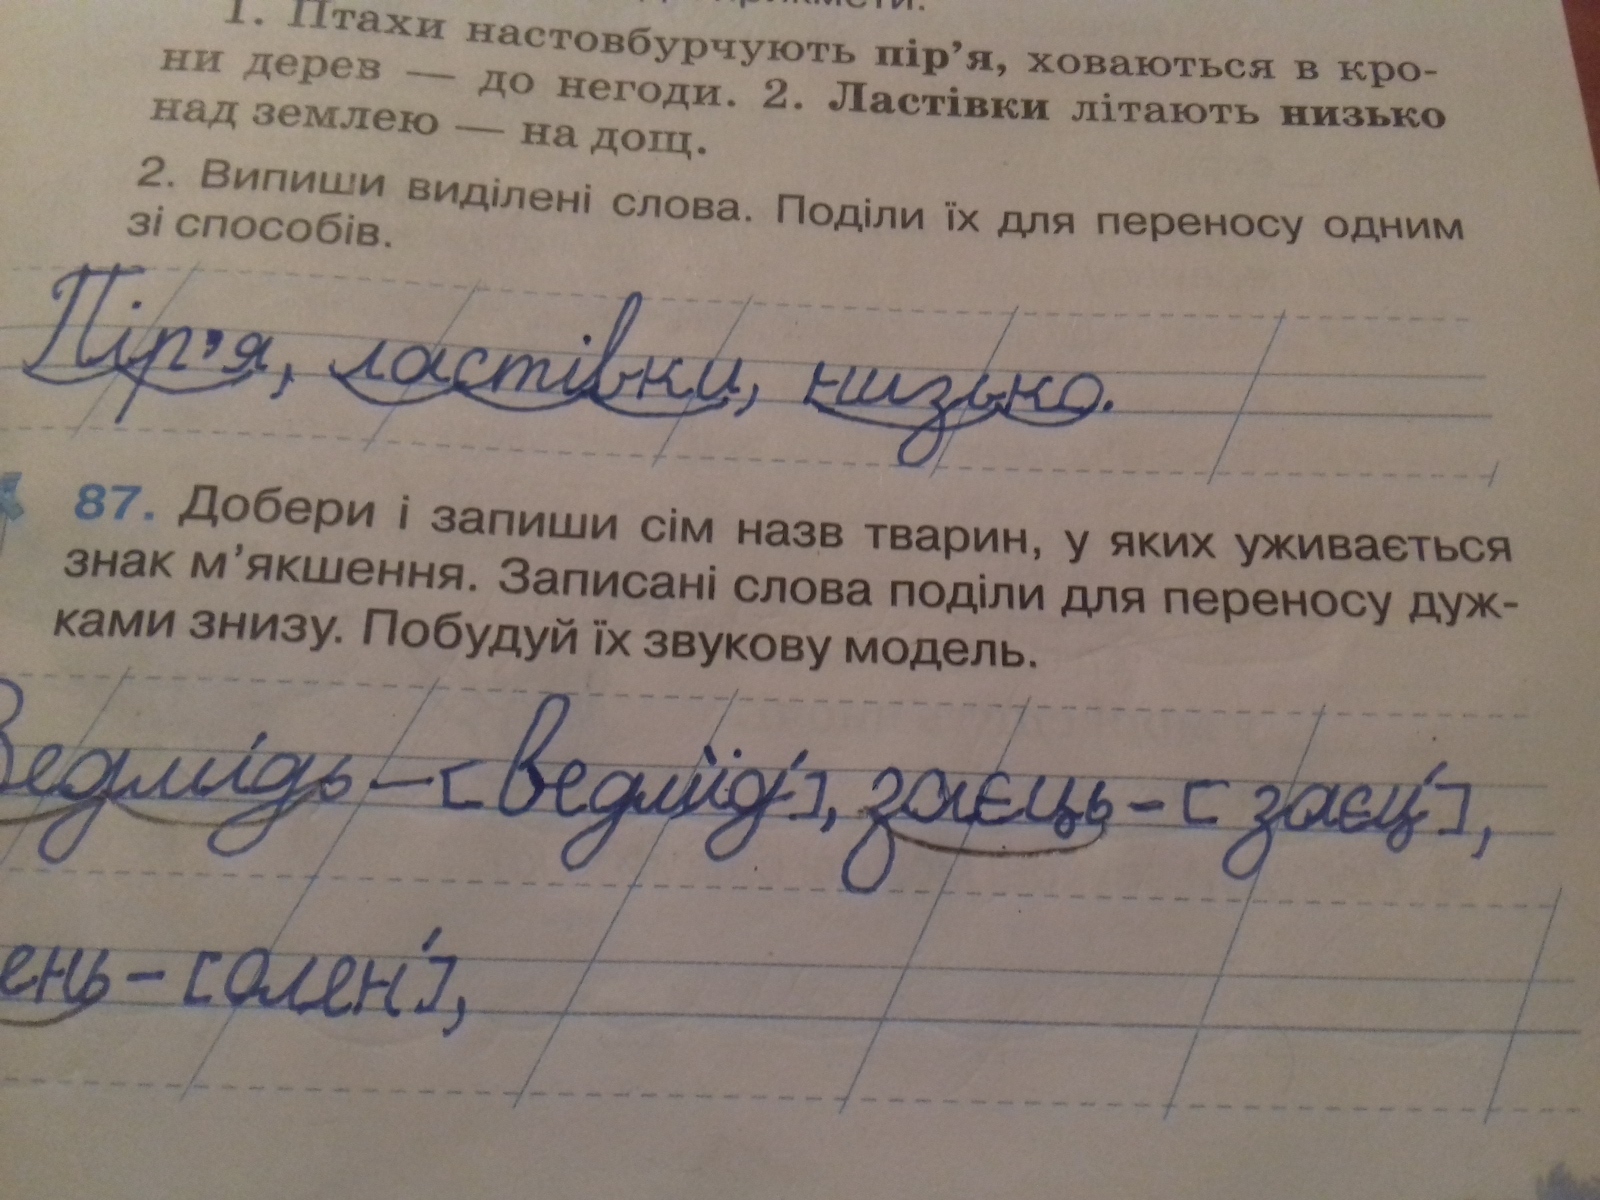 1. Птахи настовбурчують пір’я, ховаються в кро-
ни дерев — до негоди. 2. Ластівки літають низько
над землею — на дощ.
2. Випиши виділені слова. Поділи їх для переносу одним
зі способів.
Пір’я, ластівки, низько.
87. Добери і запиши сім назв тварин, у яких уживається
знак м’якшення. Записані слова поділи для переносу дуж-
ками знизу. Побудуй їх звукову модель.
Ведмідь – [ведмід′], заєць – [заєц′],
ень – [олен′],